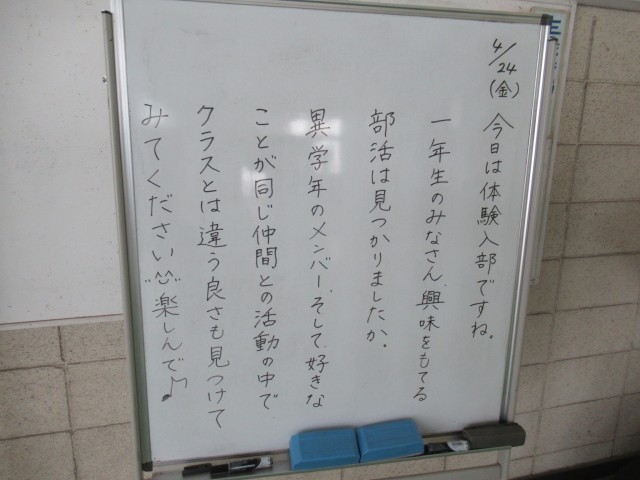 4/24(金) 今日は体験入部ですね。
一年生のみなさん、興味をもてる
部活は見つかりましたか。
異学年のメンバー、そして、好きな
ことが同じ仲間との活動の中で
クラスとは違う良さも見つけて
みてください 楽しんで♪